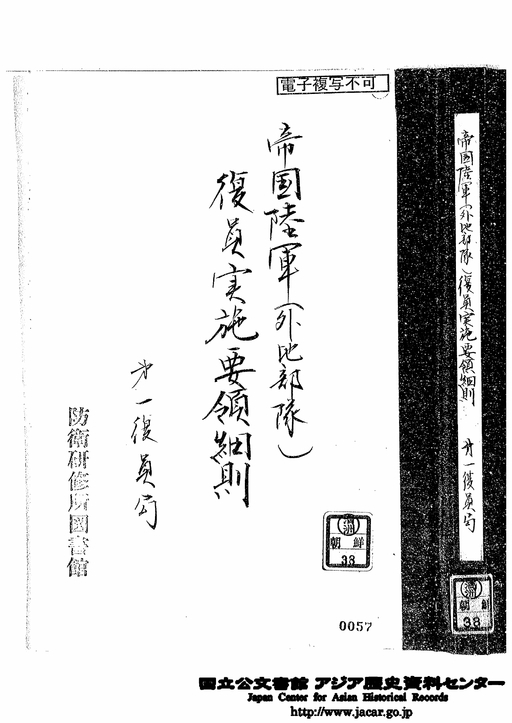 電子複写不可
帝国陸軍(外地部隊)
復員実施要領細則
才一復員局
防衛研修所図書館
満洲
朝鮮
38
0057
帝国陸軍(外地部隊)復員実施要領細則
才一復員局
満洲
朝鮮
38
国立公文書館 アジア歴史資料センター
Japan Center for Asian Historical Records
http://www.jacar.go.jp